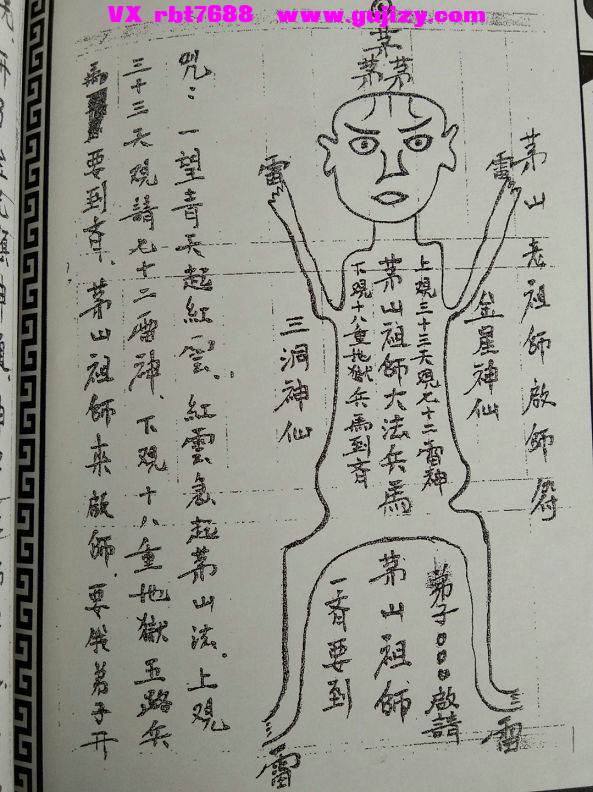 VX rbt7688 www.gujlzy.com
茅
茅茅
茅山老祖師啟師符
雷
雷
金星神仙
上觀三十三天觀七十二雷神
茅山祖師大法兵馬
下觀十八重地獄兵馬到齊
三洞神仙
弟子○○○啟請
茅山祖師
一齊要到
雷
雷
咒：一望青天起紅雲、紅雲急起茅山法、上觀
三十三天觀請七十二雷神、下觀十八重地獄五路兵
馬要到齊、茅山祖師來啟師、要俄弟子开